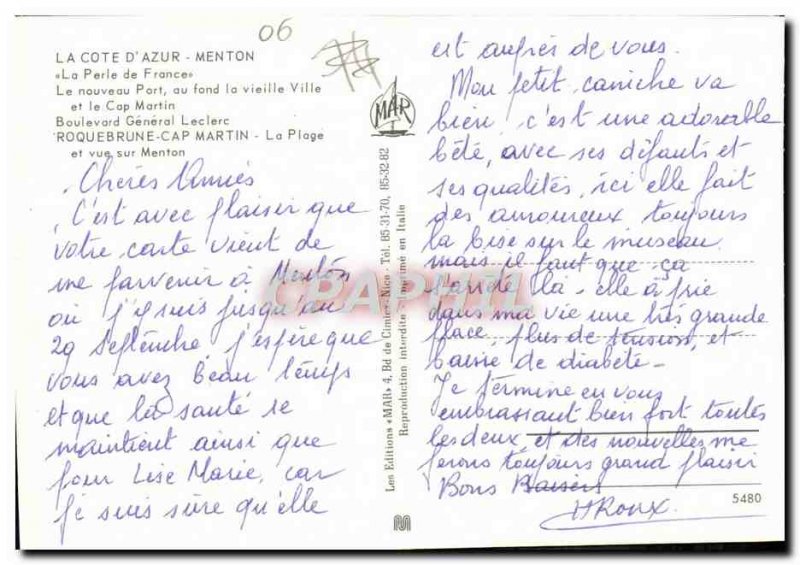 06
LA COTE D'AZUR - MENTON
«La Perle de France»
Le nouveau Port, au fond la vieille Ville
et le Cap Martin
Boulevard Général Leclerc
ROQUEBRUNE-CAP MARTIN - La Plage
et vue sur Menton
Chères Amies
C'est avec plaisir que
votre carte vient de
me parvenir à Menton
où j'y suis jusqu'au
29 Septembre j'espère que
vous avez beau temps
et que la santé se
maintient ainsi que
pour Lise Marie, car
je suis sûre qu'elle
MAR
Les Editions «MAR» 4, Bd de Cimiez - Nice - Tél. 85-31-70, 85-32-82
Reproduction interdite - Imprimé en Italie
CPAPHIL
est auprès de vous.
Mon petit caniche va
bien, c'est une adorable
bété, avec ses défauts et
ses qualités, ici elle fait
des amoureux toujours
la bise sur le museau
mais il faut que ça
s'arrête là - elle a prie
dans ma vie une très grande
place, plus de tension, et
baisse de diabète -
Je termine en vous
embrassant bien fort toutes
les deux et des nouvelles me
ferons toujours grand plaisir
Bons Baisers
HRoux
5480